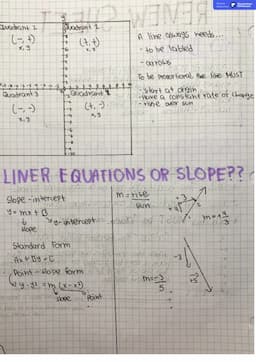 Quadrant 2
(-, +)
x, y
Quadrant 1
(+, +)
x, y
Quadrant 3
(-, -)
x, y
Quadrant 4
(+, -)
x, y
A line always needs...
- to be labled
- arrows
To be proportional the line MUST
- start at origin
- have a constant rate of change
- rise over run
LINEAR EQUATIONS OR SLOPE??
Slope-intercept
y = mx + B
slope
y-intercept
Standard Form
Ax + By = C
Point-slope form
y - y1 = m (x - x1)
slope
Point
m = rise
run
+3
2
m = -3
5
-3
+5